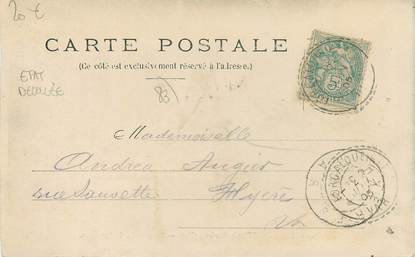 20 €
CARTE POSTALE
(Ce côté est exclusivement réservé à l'adresse.)
ETAT
DECOLLÉE
83
Mademoiselle
Andréa Augier
rue Sauvette Hyères
Var